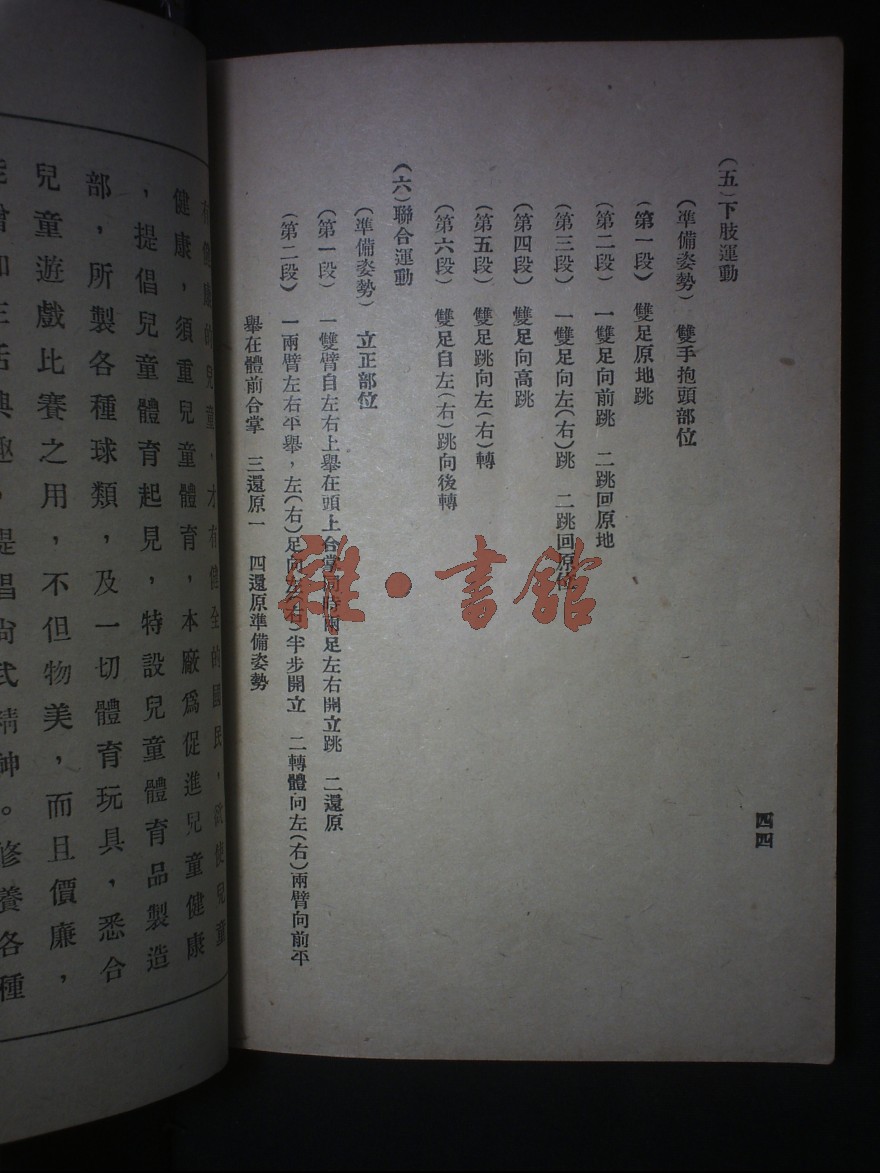 (五)下肢運動
(準備姿勢) 雙手抱頭部位
(第一段) 雙足原地跳
(第二段) 一雙足向前跳 二跳回原地
(第三段) 一雙足向左(右)跳 二跳回原位
(第四段) 雙足向高跳
(第五段) 雙足跳向左(右)轉
(第六段) 雙足自左(右)跳向後轉
(六)聯合運動
(準備姿勢) 立正部位
(第一段) 一雙臂自左右上舉在頭上合掌同時兩足左右開立跳 二還原
(第二段) 一兩臂左右平舉,左(右)足向左(右)半步開立 二轉體向左(右)兩臂向前平
舉在體前合掌 三還原一 四還原準備姿勢
四四
有健康的兒童,才有健全的國民,欲使兒童
健康,須重兒童體育,本廠爲促進兒童健康
,提倡兒童體育起見,特設兒童體育品製造
部,所製各種球類,及一切體育玩具,悉合
兒童遊戲比賽之用,不但物美,而且價廉,
能增加生活興趣,提倡尚武精神。修養各種
雜·書館